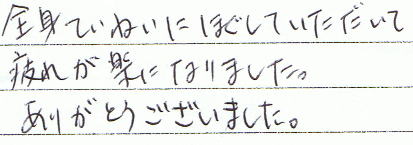 全身ていねいにほぐしていただいて
疲れが楽になりました。
ありがとうございました。